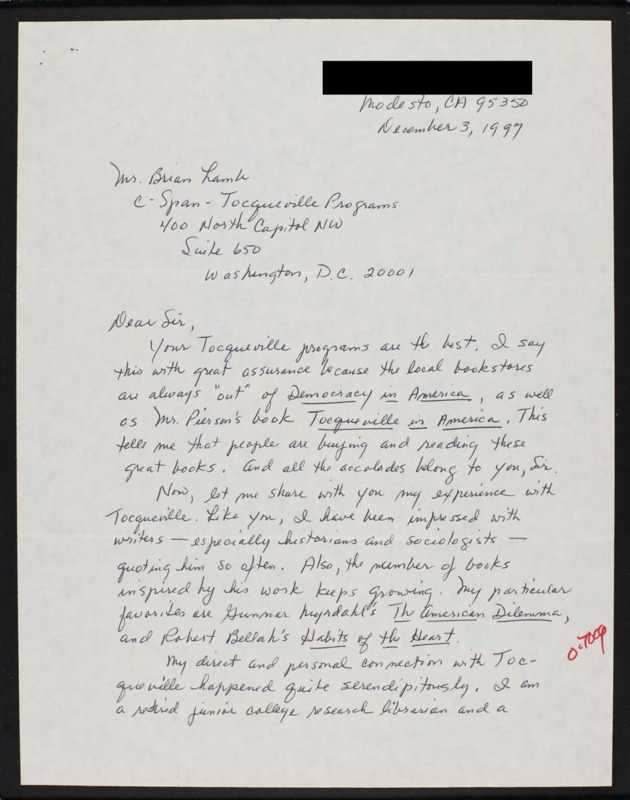 Modesto, CA 95350
December 3, 1997
Mr. Brian Lamb
C-Span - Tocqueville Programs
400 North Capitol NW
Suite 650
Washington, D.C. 20001
Dear Sir,
Your Tocqueville programs are the best. I say
this with great assurance because the local bookstores
are always "out" of Democracy in America, as well
as Mr. Pierson's book Tocqueville in America. This
tells me that people are buying and reading these
great books. And all the accolades belong to you, Sir.
Now, let me share with you my experience with
Tocqueville. Like you, I have been impressed with
writers — especially historians and sociologists —
quoting him so often. Also, the number of books
inspired by his work keeps growing. My particular
favorites are Gunnar Myrdahl's The American Dilemma,
and Robert Bellah's Habits of the Heart.
My direct and personal connection with Toc-
queville happened quite serendipitously. I am
a retired junior college research librarian and a
O-Tocq